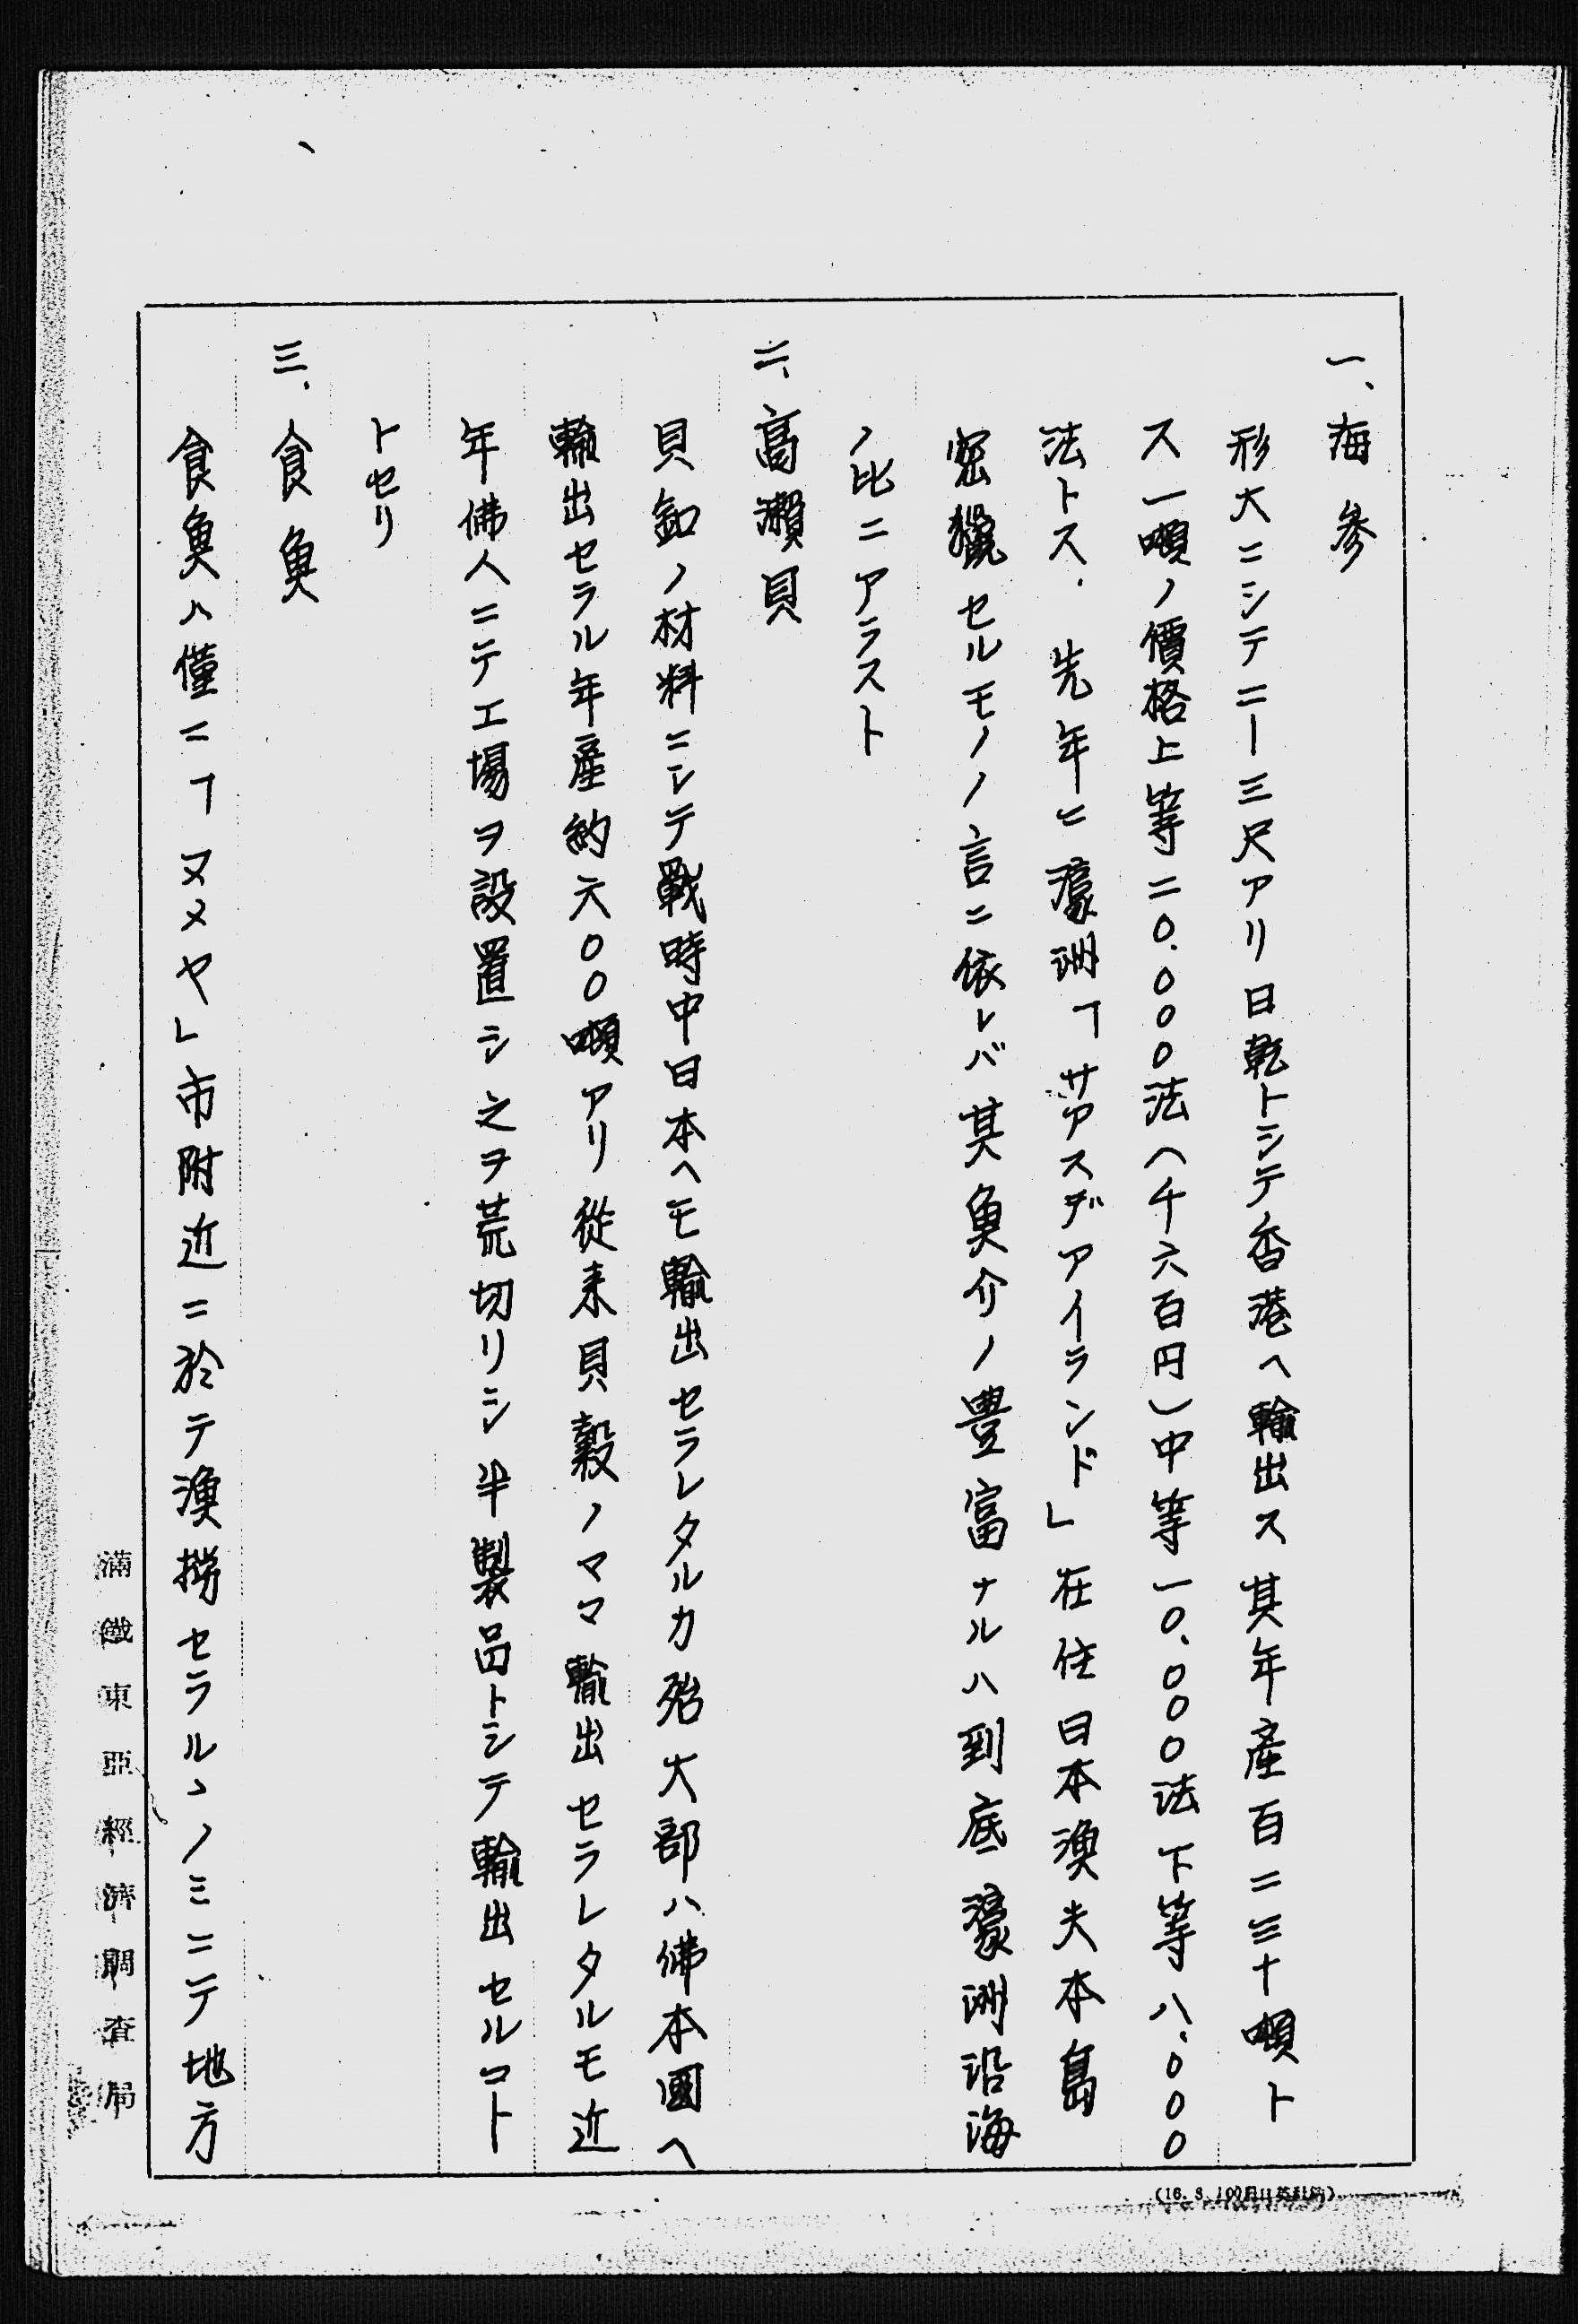 一、海參
形大ニシテ二ー三尺アリ日乾トシテ香港ヘ輸出ス其年產百二三十噸ト
ス一噸ノ價格上等二〇.〇〇〇法（千六百円）中等一〇.〇〇〇法下等八、〇〇〇
法トス．先年ニ濠洲「サアスデアイランド」在住日本漁夫本島
密獵セルモノノ言ニ依レバ其魚介ノ豊富ナルハ到底濠洲沿海
ノ比ニアラスト
二、高瀬貝
貝釦ノ材料ニシテ戰時中日本ヘモ輸出セラレタルカ殆大部ハ佛本國ヘ
輸出セラル年產約六〇〇噸アリ從来貝穀ノママ輸出セラレタルモ近
年佛人ニテ工場ヲ設置シ之ヲ荒切リシ半製品トシテ輸出セルコト
トセリ
三．食魚
食魚ハ僅ニ「ヌメヤ」市附近ニ於テ漁撈セラルヽノミニテ地方
滿鐵東亞經濟調査局